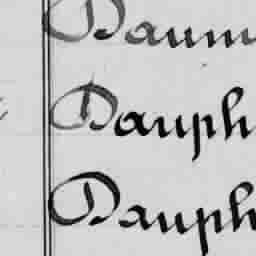 Daum
Dauph
Dauph